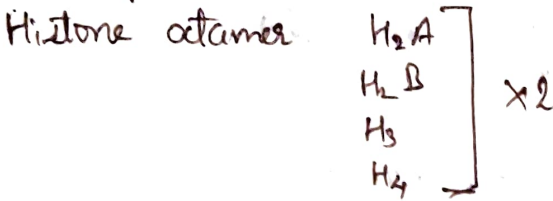 Histone octamer H₂A
H₂B
H₃
H₄
×2